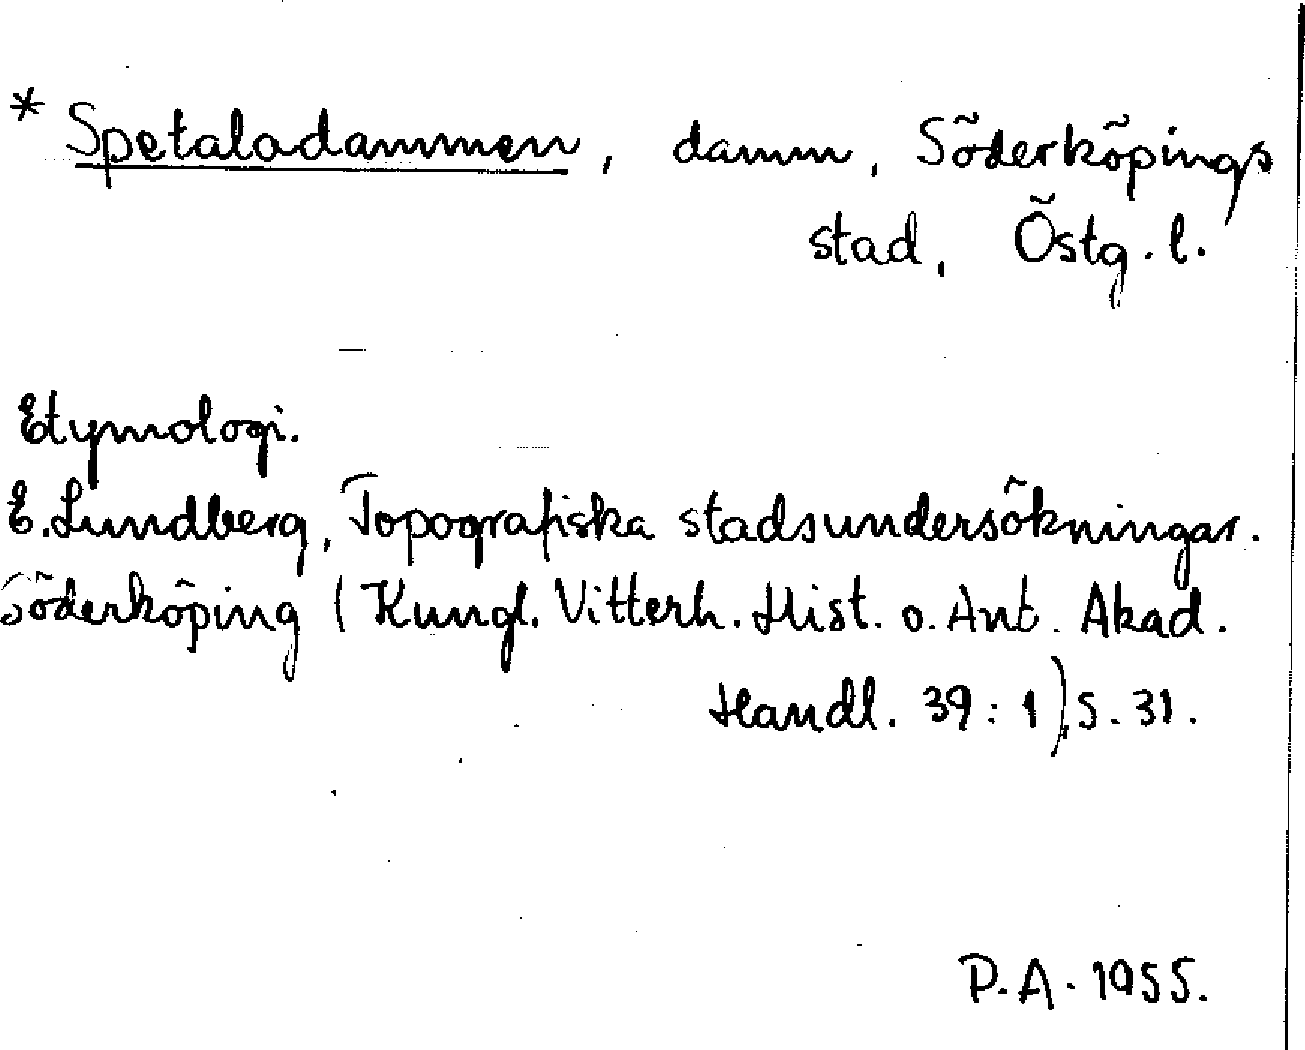 * Spetaladammen, damm, Söderköpings
stad, Östg. l.
Etymologi.
E. Lundberg, Topografiska stadsundersökningar.
Söderköping (Kungl. Vitterh. Hist. o. Ant. Akad.
Handl. 39:1), s. 31.
P.A. 1955.